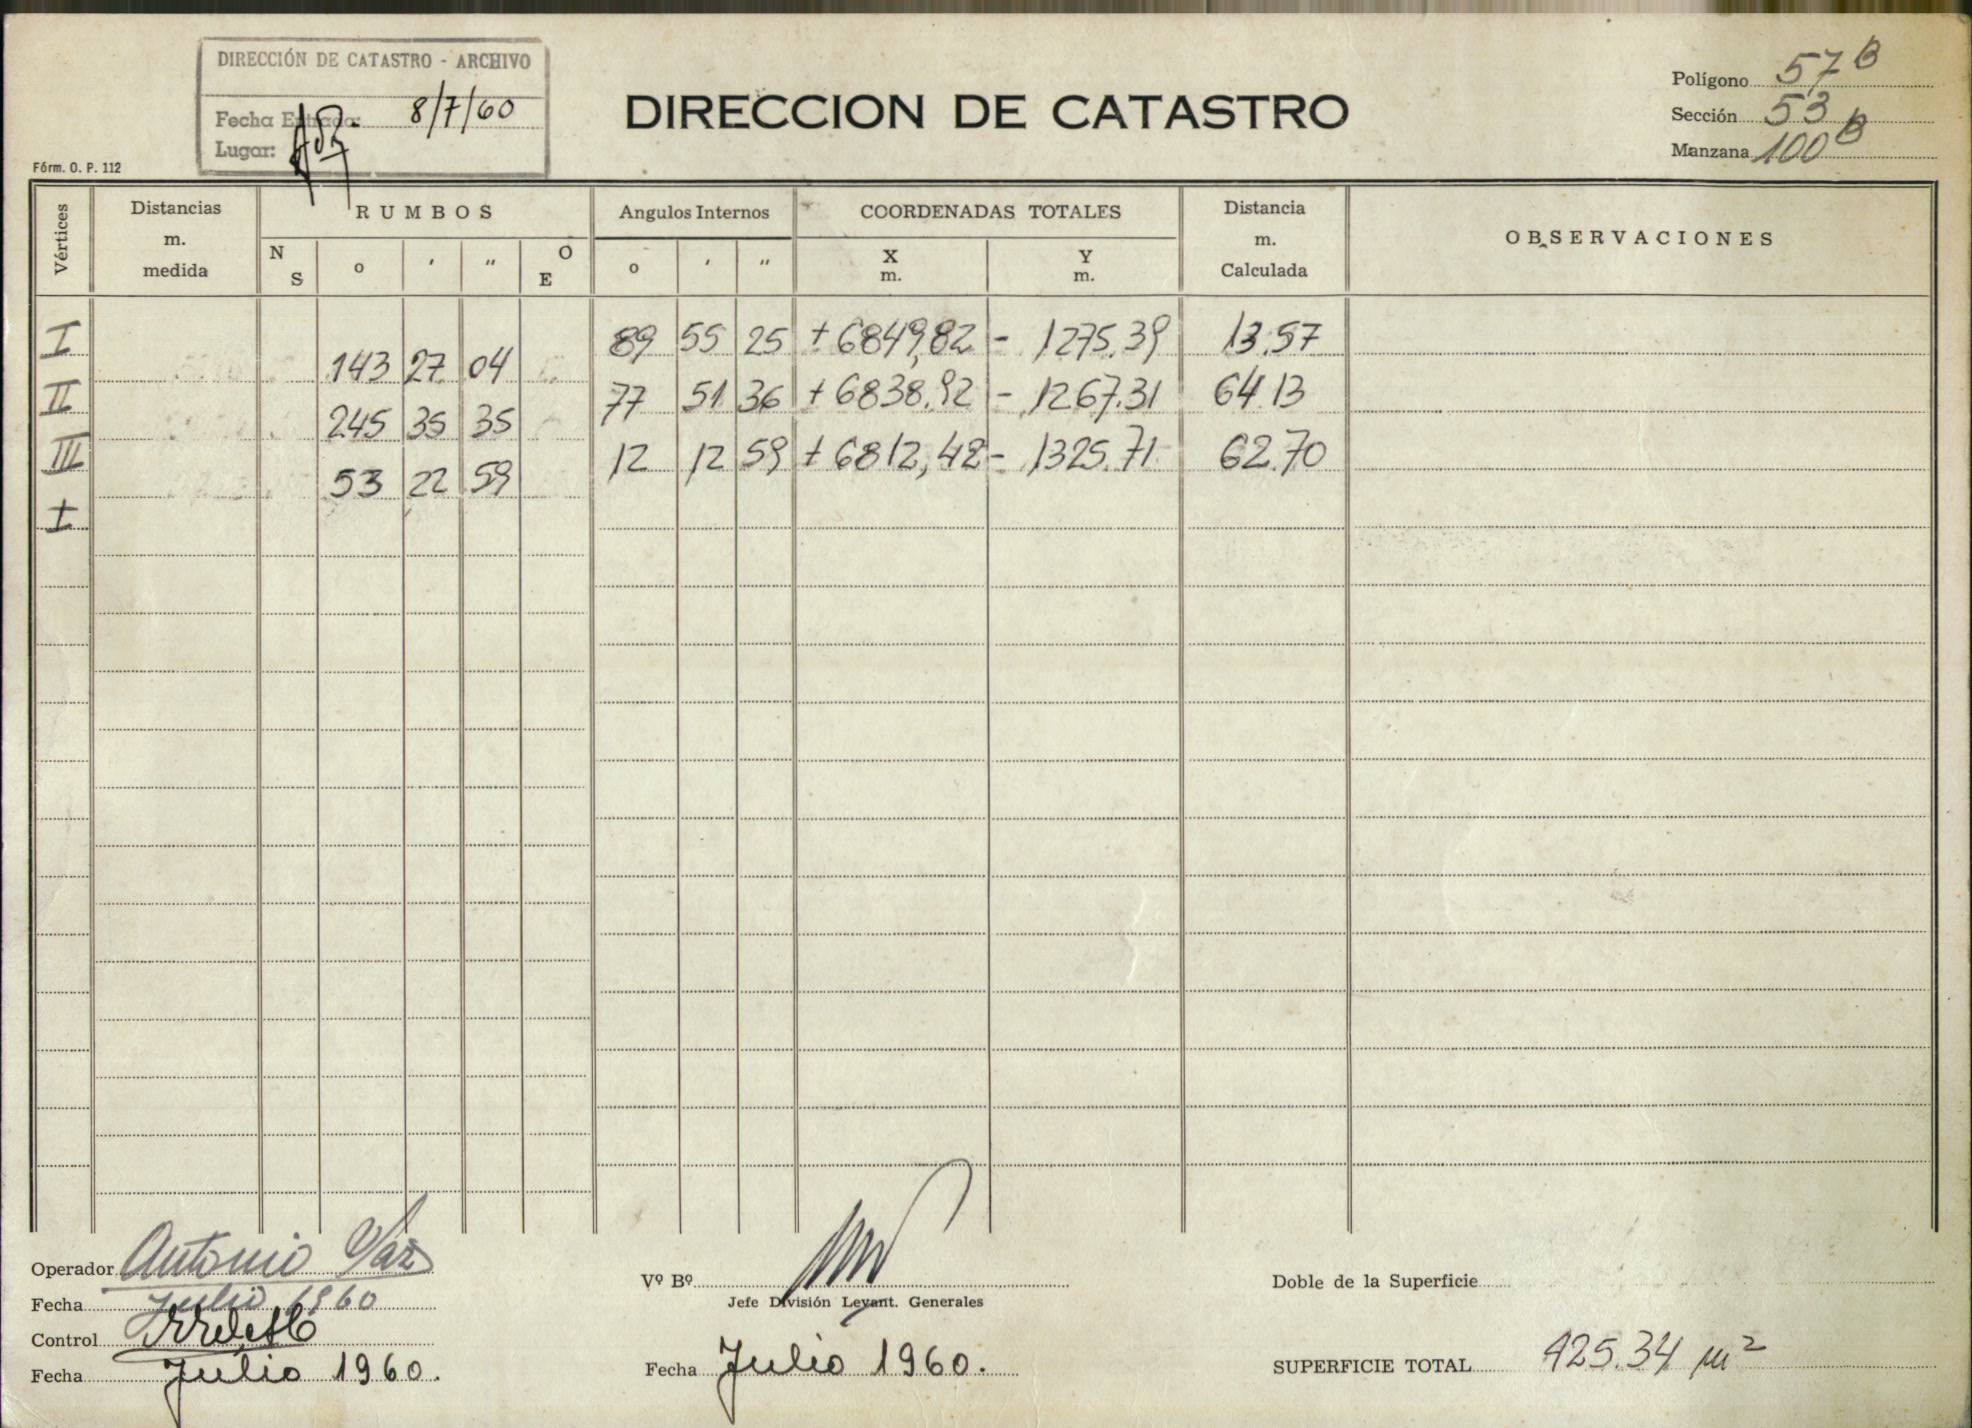 DIRECCIÓN DE CATASTRO - ARCHIVO
Fecha Entrada: 8/7/60
Lugar:
DIRECCION DE CATASTRO
Polígono 57 B
Sección 53
Manzana 100 B
Fórm. O. P. 112
Vértices
Distancias
m.
medida
RUMBOS
N
S
o
′
″
O
E
Angulos Internos
o
′
″
COORDENADAS TOTALES
X
m.
Y
m.
Distancia
m.
Calculada
OBSERVACIONES
I 89 55 25 + 6849,82 - 1275.39 13.57
143 27 04
II 77 51 36 + 6838.92 - 1267.31 64.13
245 35 35
III 12 12 59 + 6812,42 - 1325.71 62.70
53 22 59
I
Operador Antonio
Fecha Julio 1960
Control
Fecha Julio 1960.
Vº Bº
Jefe División Levant. Generales
Fecha Julio 1960.
Doble de la Superficie
SUPERFICIE TOTAL 425.34 m²